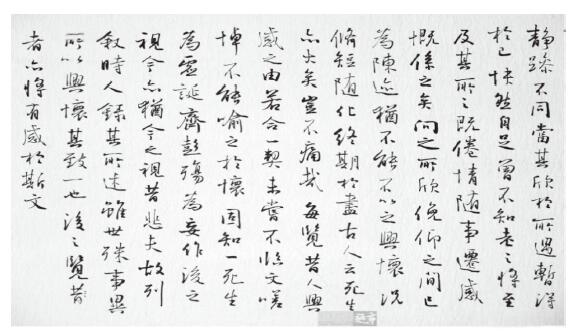 靜躁不同當其欣於所遇暫得
於己快然自足曾不知老之將至
及其所之既倦情隨事遷感
慨係之矣向之所欣俛仰之間已
為陳迹猶不能不以之興懷況
脩短隨化終期於盡古人云死生
亦大矣豈不痛哉每覽昔人興
感之由若合一契未嘗不臨文嗟
悼不能喻之於懷固知一死生
為虛誕齊彭殤為妄作後之
視今亦猶今之視昔悲夫故列
敘時人錄其所述雖世殊事異
所以興懷其致一也後之覽昔
者亦將有感於斯文